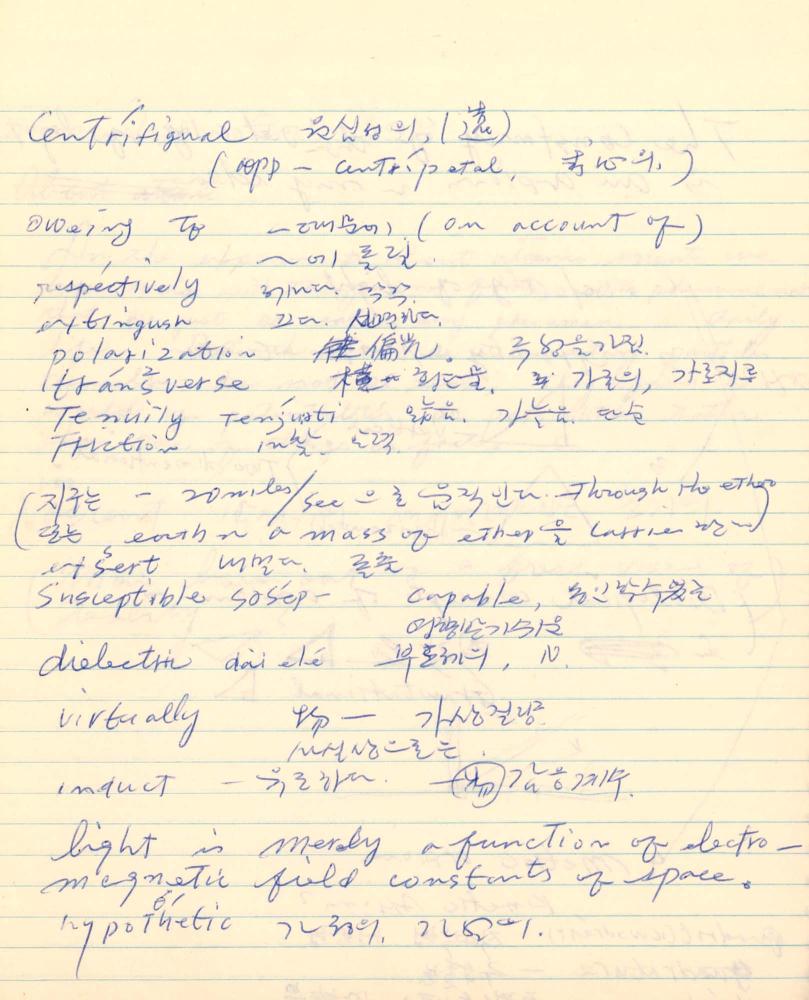 Centrifigual 원심성의, (遠)
(opp – centripetal, 求心의,)
oweing to –때문에, (on account of)
~에 돌릴
respectively 각각
extingush 끄다. 소멸하다.
polarization 偏光。 극성을가짐.
transverse 횡단물, 가로의, 가로지르
Tenuity 얇음. 가늚음.
Friction 마찰. 알력.
(지구는 – 20 miles/sec 으로 움직인다. Through the ether
또는 earth n a mass of ether을 carrie
exsert 내밀다. 돌출
Susceptible sosep– capable,
dielectric dai elé 부도체의, N.
virtually 物 –
사실상으로는.
induct – 유도하다. –(物) 감응계수.
light is merely a function of electro–
magnetic field constants of space.
hypothetic 가정의, 가설의.